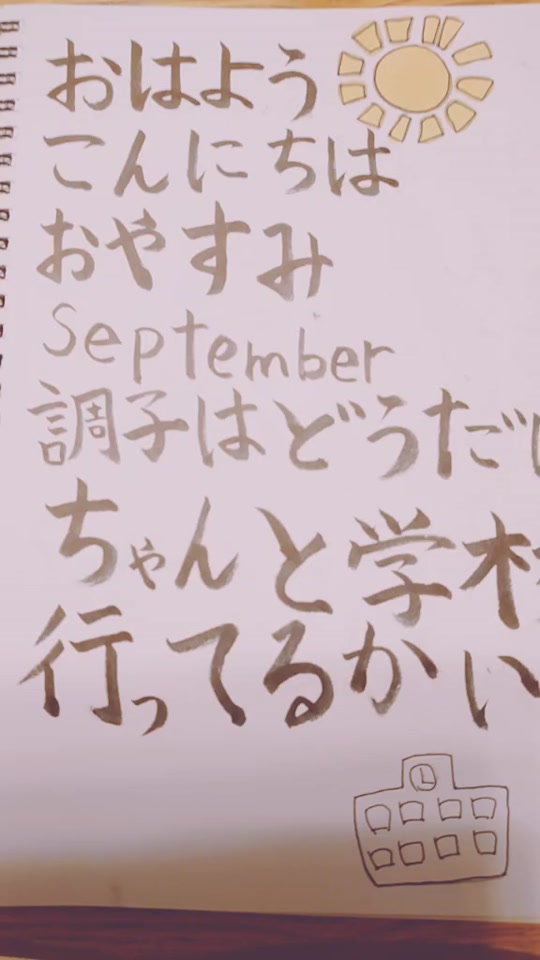 おはよう
こんにちは
おやすみ
September
調子はどうだ
ちゃんと学
行ってるかい